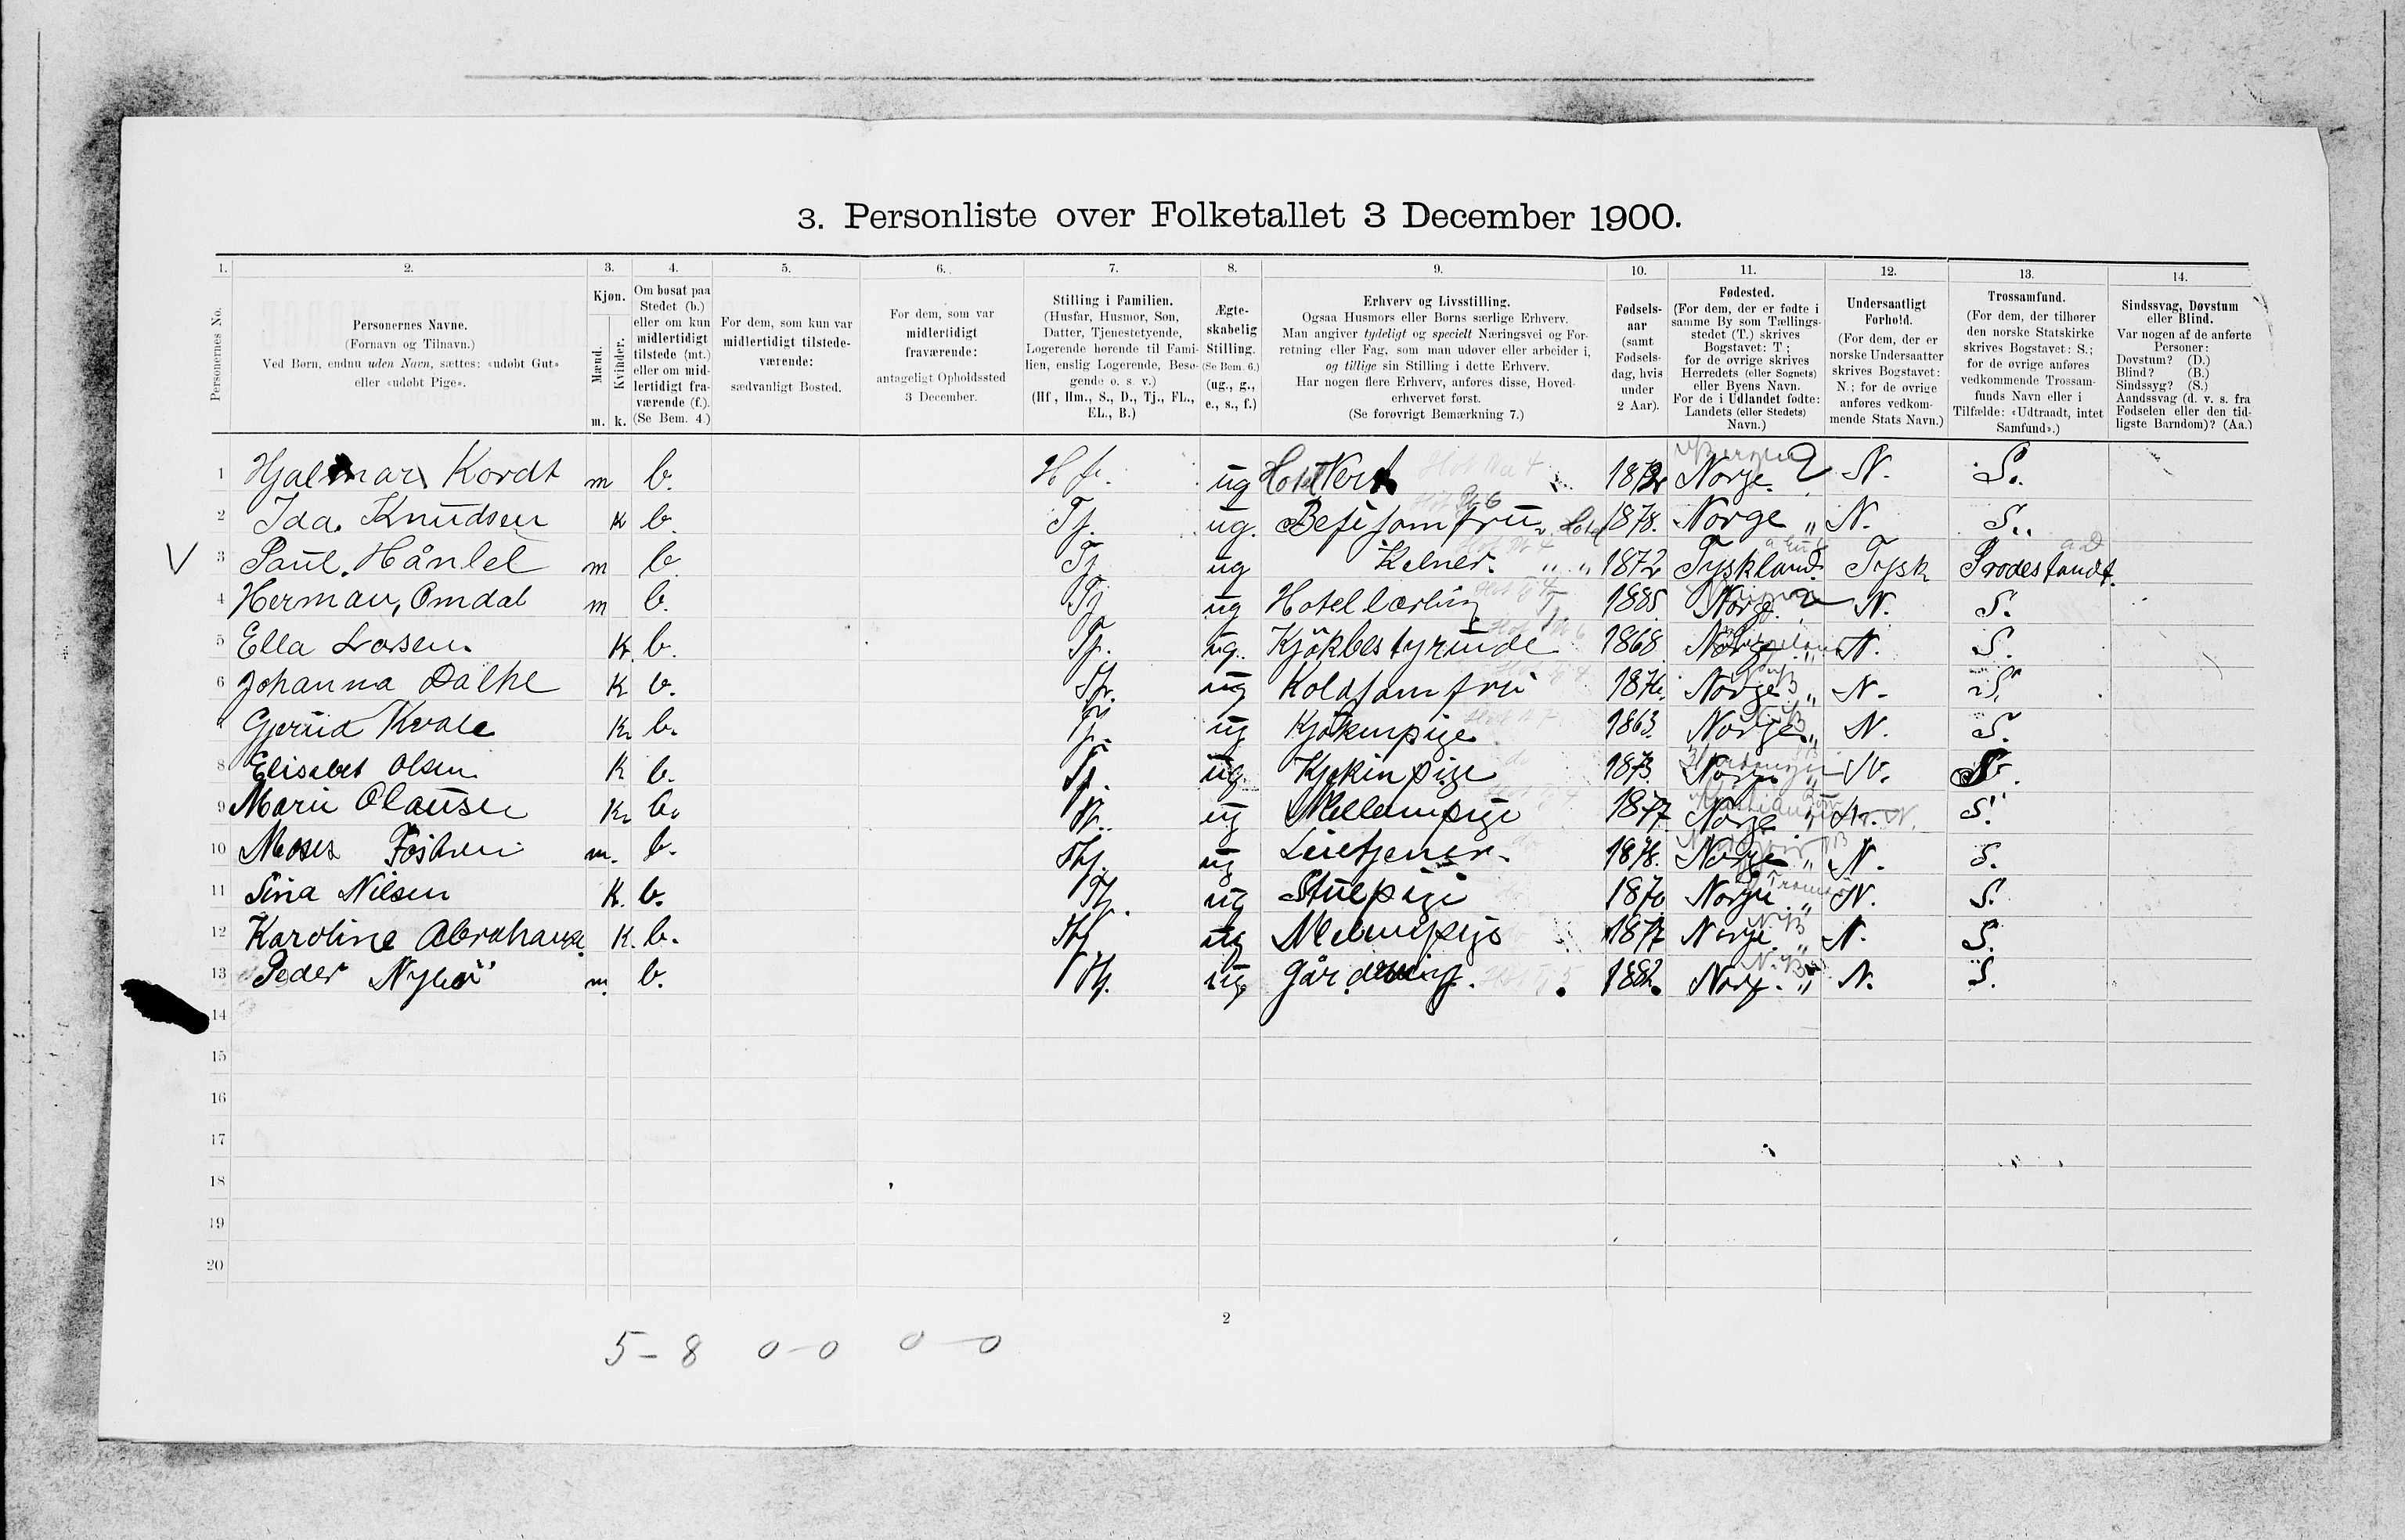 3. Personliste over Folketallet 3 December 1900.
1. 2. 3. 4. 5. 6. 7. 8. 9. 10. 11. 12. 13. 14.
Personernes No.
Personernes Navne.
(Fornavn og Tilnavn.)
Ved Børn, endnu uden Navn, sættes: «udøbt Gut»
eller «udøbt Pige».
Kjøn.
Mænd.
Kvinder.
m. k.
Om bosat paa
Stedet (b.)
eller om kun
midlertidigt
tilstede (mt.)
eller om mid-
lertidigt fra-
værende (f.).
(Se Bem. 4.)
For dem, som kun var
midlertidigt tilstede-
værende:
sædvanligt Bosted.
For dem, som var
midlertidigt
fraværende:
antageligt Opholdssted
3 December.
Stilling i Familien.
(Husfar, Husmor, Søn,
Datter, Tjenestetyende,
Logerende hørende til Fami-
lien, enslig Logerende, Besø-
gende o. s. v.)
(Hf., Hm., S., D., Tj., FL.,
EL., B.)
Ægte-
skabelig
Stilling.
(Se Bem. 6.)
(ug., g.,
e., s., f.)
Erhverv og Livsstilling.
Ogsaa Husmors eller Børns særlige Erhverv.
Man angiver tydeligt og specielt Næringsvei og For-
retning eller Fag, som man udøver eller arbeider i,
og tillige sin Stilling i dette Erhverv.
Har nogen flere Erhverv, anføres disse, Hoved-
erhvervet først.
(Se forøvrigt Bemærkning 7.)
Fødsels-
aar
(samt
Fødsels-
dag, hvis
under
2 Aar).
Fødested.
(For dem, der er fødte i
samme By som Tællings-
stedet (T.) skrives
Bogstavet: T;
for de øvrige skrives
Herredets (eller Sognets)
eller Byens Navn.
For de i Udlandet fødte:
Landets (eller Stedets)
Navn.)
Undersaatligt
Forhold.
(For dem, der er
norske Undersaatter
skrives Bogstavet:
N.; for de øvrige
anføres vedkom-
mende Stats Navn.)
Trossamfund.
(For dem, der tilhører
den norske Statskirke
skrives Bogstavet: S.;
for de øvrige anføres
vedkommende Trossam-
funds Navn eller i
Tilfælde: «Udtraadt, intet
Samfund».)
Sindssvag, Døvstum
eller Blind.
Var nogen af de anførte
Personer:
Døvstum? (D.)
Blind? (B.)
Sindssyg? (S.)
Aandssvag (d. v. s. fra
Fødselen eller den tid-
ligste Barndom)? (Aa.)
1 Hjalmar Kordt m b. Hf. ug Hotel Vert 1872 Norge. N. S.
2 Ida. Knudsen K b. Tj. ug. Hotel 1878. Norge „ N. S.
V 3 Paul. Hänlel m b. Tj ug Kelner. „ „ 1872 Tyskland Tysk Prodestandt.
4 Herman, Omdal m b. Tj ug Hotel Lærling 1885 Norge N. S.
5 Ella Larsen. K. b. Tj. ug. Kjøkbestyrinde 1868 Norge „ N. S.
6 Johanna Dalhe K b. Tj. ug Koldjomfru 1876. Norge „ N. S.
Kvale K. b. Tj. ug Kjøkenpige. 1863. Norge „ N. S.
8 Elisabet Olsen K b. Tj. ug. Kjøkinpige 1873. Norge „ N. S.
9 Marie Olausen K. b. Tj. ug Mellempige 1877 Norge „ N. S.
10 Moses m. b. Thj. ug 1878. Norge „ N. S.
11 Sina Nilsen K. b. Tj. ug Stuepige 1870 Norge. „ N. S.
12 Karoline K. b. Thj ug 1877 Norge. „ N. S.
13 Peder m. b. Thj. ug 1882. Norg. „ N. S.
14
15
16
17
18
19
20
2
5 - 8 0 - 0 0 - 0